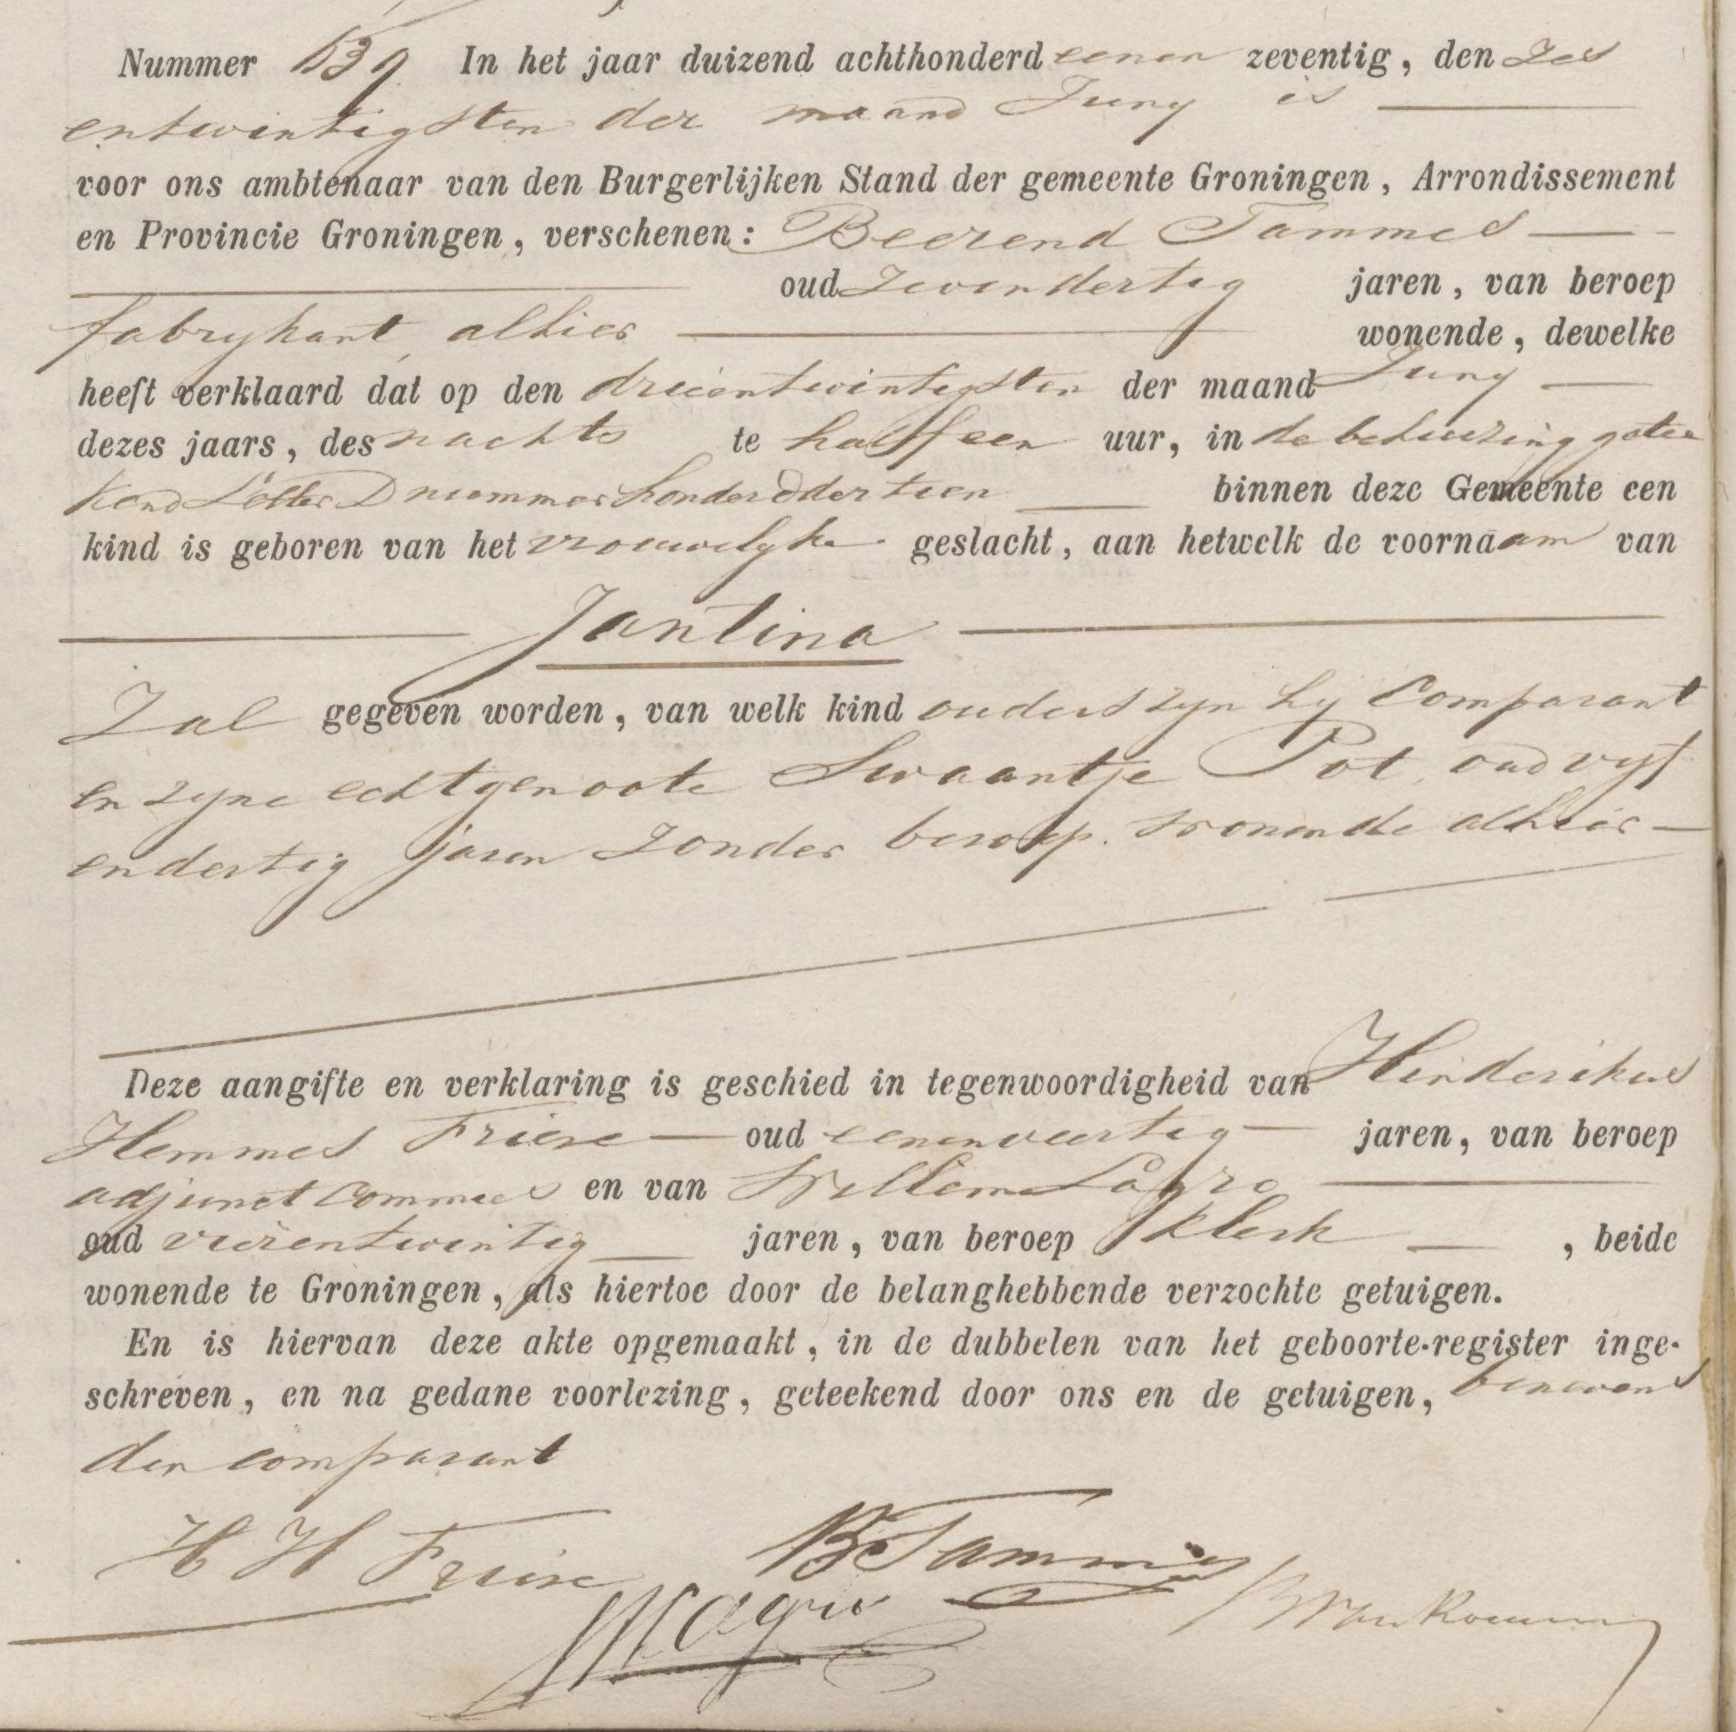 Nummer 639 In het jaar duizend achthonderd eenen zeventig, den Zes
entwintigsten der maand Juny is
voor ons ambtenaar van den Burgerlijken Stand der gemeente Groningen, Arrondissement
en Provincie Groningen, verschenen: Beerend Tammes
oud Zevendertig jaren, van beroep
fabrykant, alhier wonende, dewelke
heeft verklaard dat op den drieentwintigsten der maand Juny
dezes jaars, des nachts te half een uur, in de behuizing getee
kend Letter D nummer honderd dertien binnen deze Gemeente een
kind is geboren van het vrouwelyke geslacht, aan hetwelk de voornaam van
Jantina
Zal gegeven worden, van welk kind ouders zyn hy Comparant
en zyne echtgenoote Swaantje Pot, oud vyf
endertig jaren zonder beroep. wonende alhier
Deze aangifte en verklaring is geschied in tegenwoordigheid van Hinderikus
Hemmes Friese oud eenenveertig jaren, van beroep
adjunct Commies en van Willem
oud vierentwintig jaren, van beroep Klerk, beide
wonende te Groningen, als hiertoe door de belanghebbende verzochte getuigen.
En is hiervan deze akte opgemaakt, in de dubbelen van het geboorte-register inge-
schreven, en na gedane voorlezing, geteekend door ons en de getuigen, benevens
den comparant
H H Friese
B Tammes